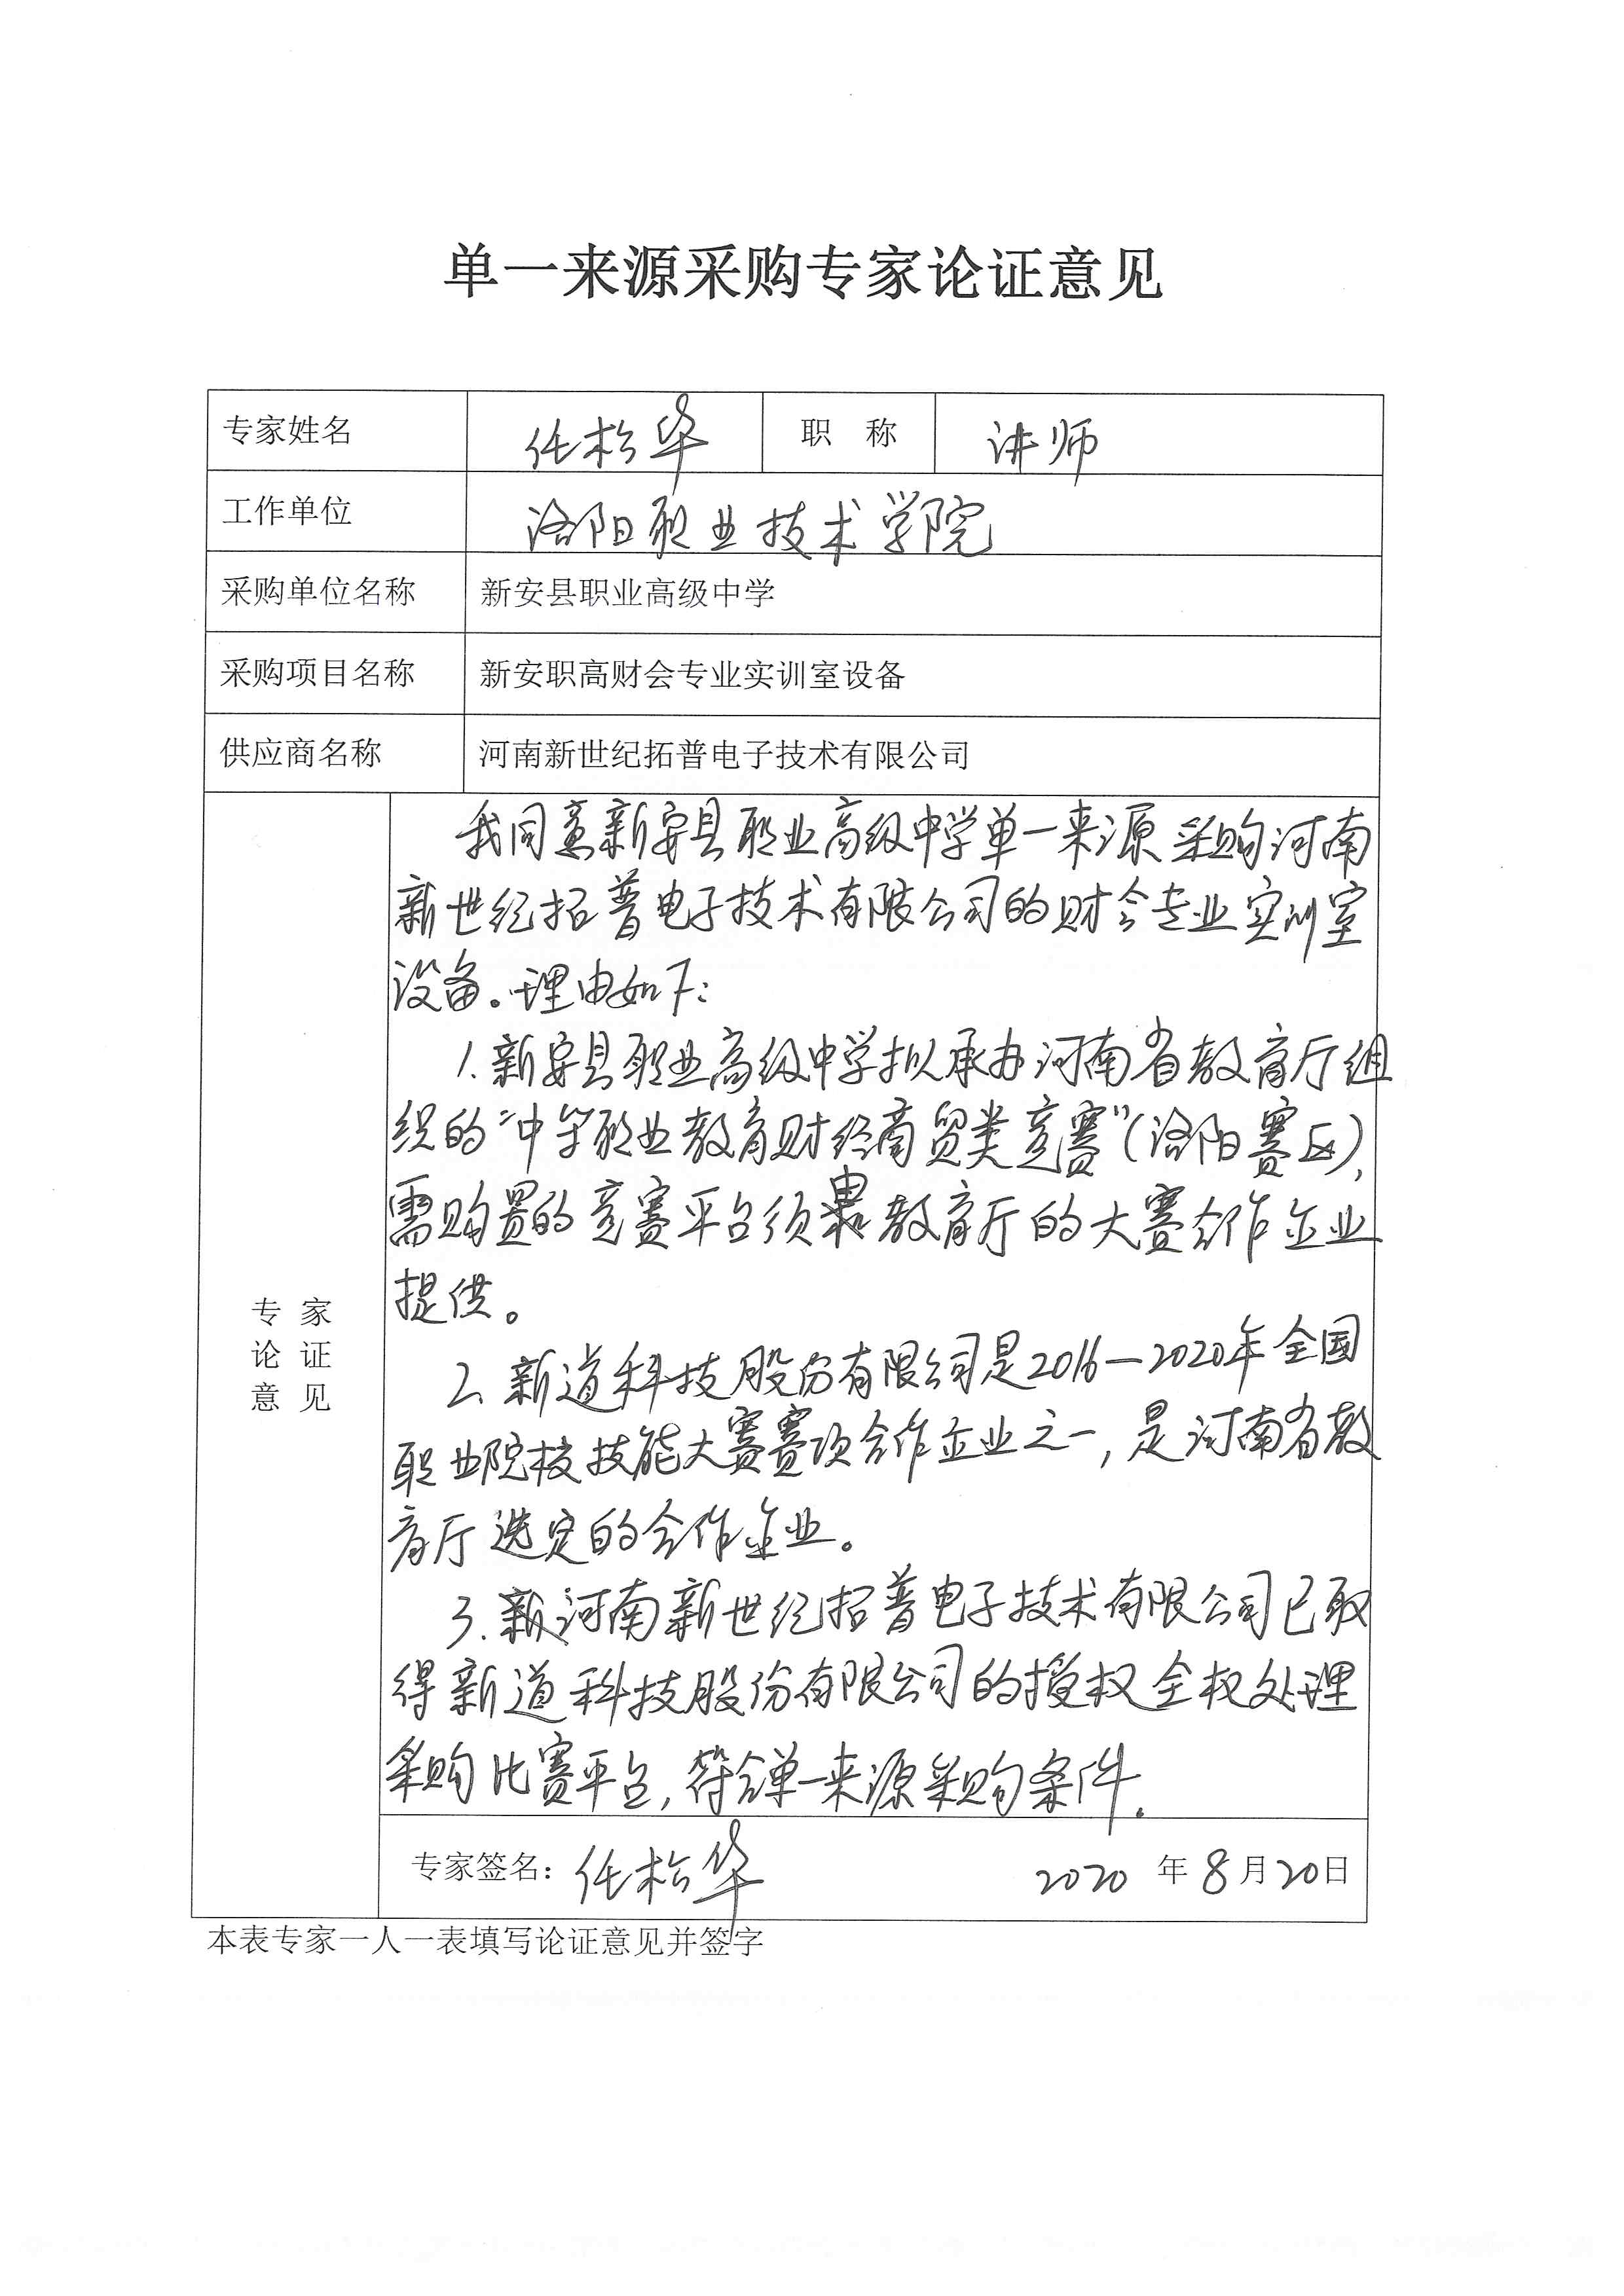 单一来源采购专家论证意见
专家姓名 任松华 职 称 讲师
工作单位 洛阳职业技术学院
采购单位名称 新安县职业高级中学
采购项目名称 新安职高财会专业实训室设备
供应商名称 河南新世纪拓普电子技术有限公司
专 家
论 证
意 见
我同意新安县职业高级中学单一来源采购河南
新世纪拓普电子技术有限公司的财会专业实训室
设备。理由如下:
1.新安县职业高级中学拟承办河南省教育厅组
织的“中等职业教育财经商贸类竞赛”(洛阳赛区),
需购置的竞赛平台须由教育厅的大赛合作企业
提供。
2、新道科技股份有限公司是2016—2020年全国
职业院校技能大赛赛项合作企业之一,是河南省教
育厅选定的合作企业。
3.河南新世纪拓普电子技术有限公司已取
得新道科技股份有限公司的授权全权处理
采购比赛平台,符合单一来源采购条件。
专家签名: 任松华 2020 年 8 月 20 日
本表专家一人一表填写论证意见并签字